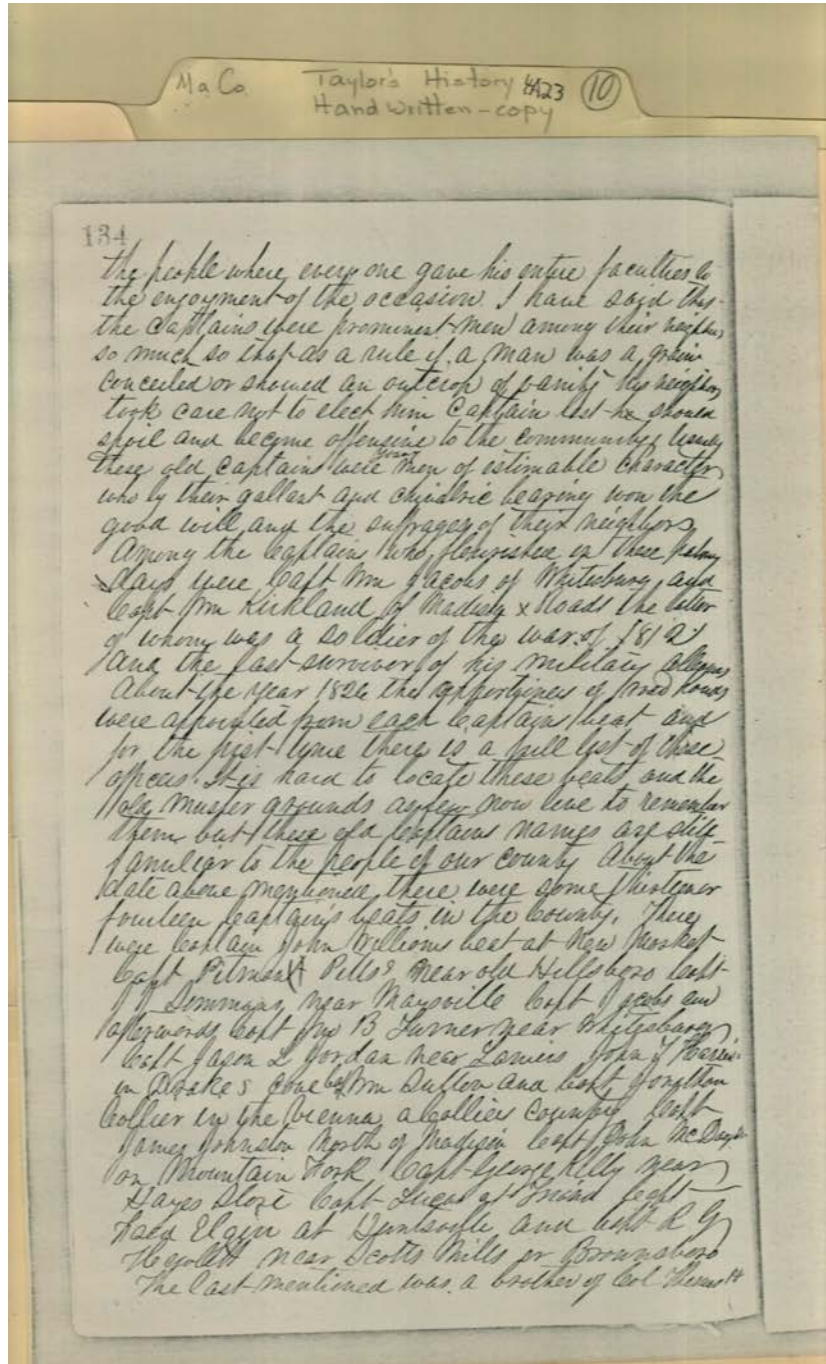 Ma Co Taylor's History 4A23 10
Handwritten - copy
134
the people where every one gave his entire faculties to
the enjoyment of the occasion. I have said that
the Captains were prominent men among their neighbors
so much so that as a rule if a man was a grain
conceited or showed an outcrop of vanity his neighbors
took care not to elect him Captain lest he should
spoil and become offensive to the community. Usually
these old Captains were young men of estimable character
who by their gallant and chivalric bearing won the
good will and the suffrages of their neighbors
Among the Captains who flourished in these palmy
days were Capt Wm Jacobs of Whitesburg and
Capt Jim Kirkland of Madison X Roads the latter
of whom was a soldier of the war of 1812
and the last survivor of his military
About the year 1826 the of roads
were appointed from each Captains beat and
for the first time there is a full list of these
officers. It is hard to locate these beats and the
old muster grounds as few now live to remember
them but these old Captains names are still
familiar to the people of our county About the
date above mentioned there were some thirteen or
fourteen Captain's beats in the County. There
were Captain John Williams beat at New Market
Capt Pitman Pitts near old Hillsboro Capt
Simmons near Maysville Capt Jacobs and
afterwords Capt Jno B Turner near Whitesburg
Capt Jason L Jordan near Laniers John Y Harris
in Drakes cove Capt Wm Dutton and Capt Jonathan
Collier in the Vienna Collier County Capt
James Johnston North of Madison Capt John McDay
on Mountain Fork Capt George Kelly near
Hayes Store Capt Lucas at Triad Capt
Elgin at Huntsville and Capt R G
Hewlett near Scotts Mills or Brownsboro
The last mentioned was a brother of Col Thomas H